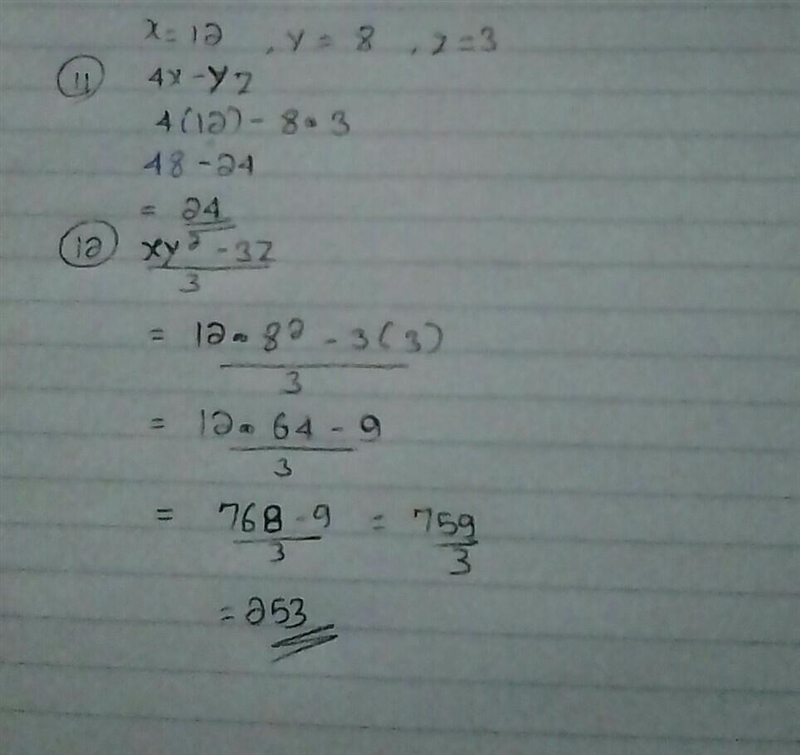 x = 12 , y = 8 , z = 3
11 4x - yz
4(12) - 8 • 3
48 - 24
= 24
12 xy² - 3z
3
= 12 • 8² - 3(3)
3
= 12 • 64 - 9
3
= 768 - 9 = 759
3 3
= 253